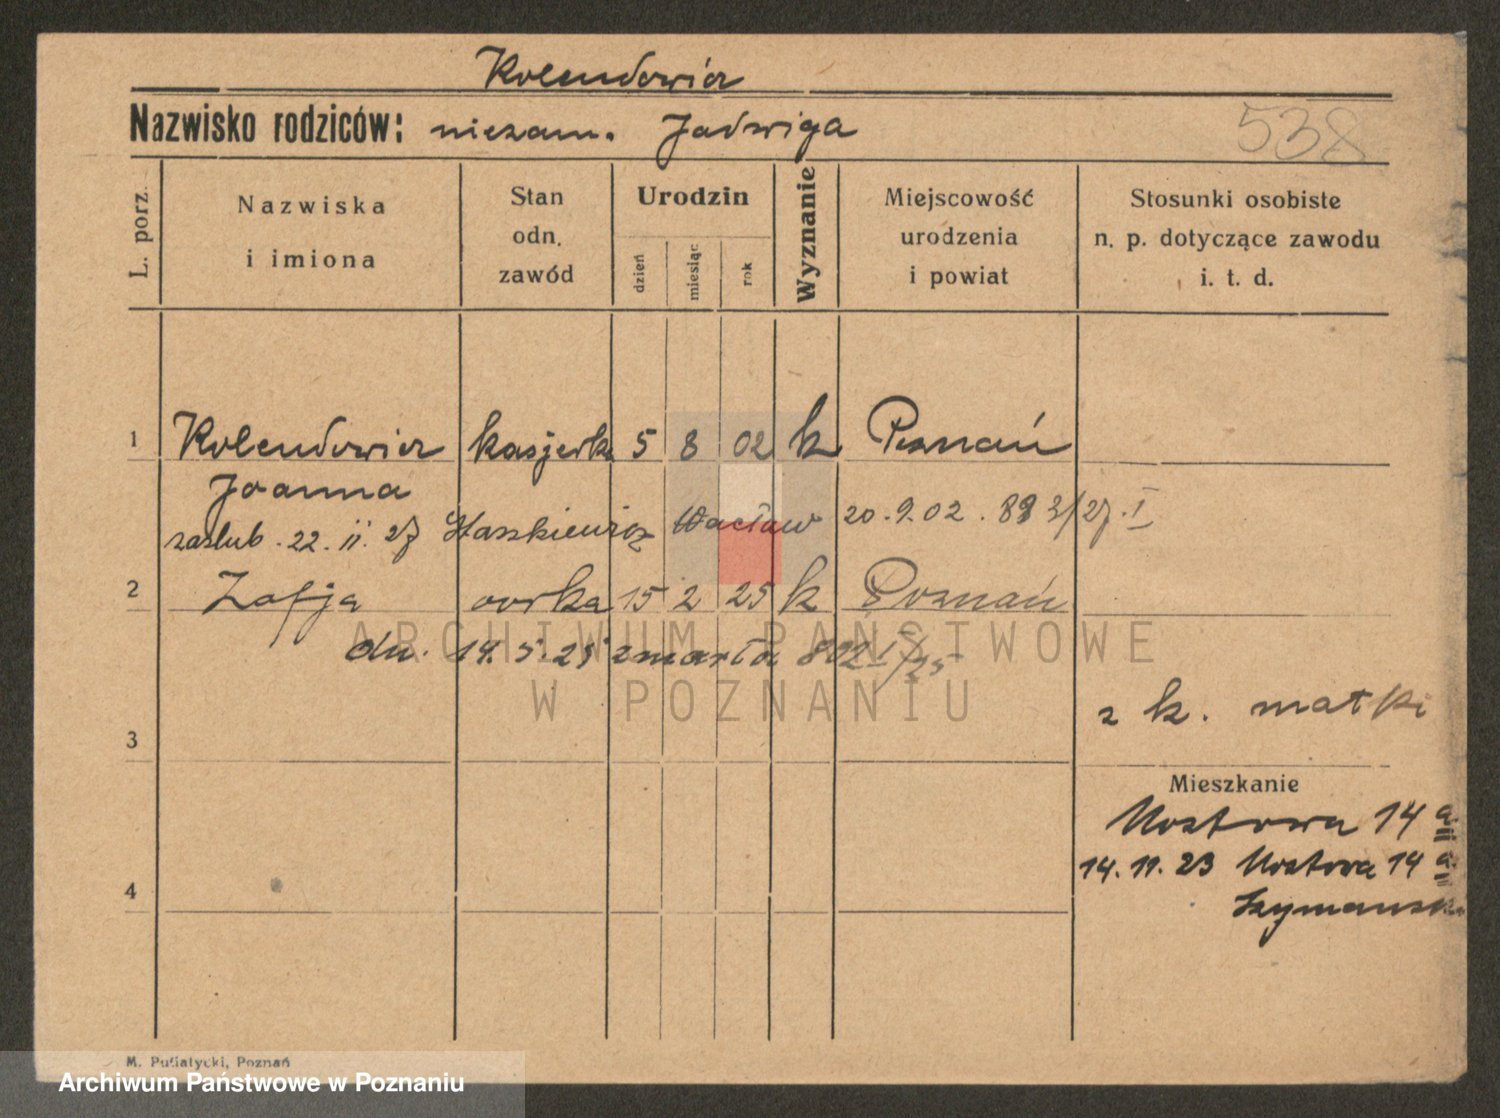 Kolendowicz
Nazwisko rodziców: niezam. Jadwiga
538
L. porz.
Nazwiska
i imiona
Stan
odn.
zawód
Urodzin
dzień
miesiąc
rok
Wyznanie
Miejscowość
urodzenia
i powiat
Stosunki osobiste
n. p. dotyczące zawodu
i. t. d.
1 Kolendowicz kasjerka 5 8 02 k Poznań
Joanna
zaślub. 22. II. 27 Staszkiewicz Wacław 20.9.02.
2 Zofja córka 15 2 25 k Poznań
dn. 14. 5. 25 zmarła 802 I/25
ARCHIWUM PAŃSTWOWE
W POZNANIU
z k. matki
3
Mieszkanie
Mostowa 14 a
14. 11. 23 Mostowa 14 a
4
Szymańsk
M. Putiatycki, Poznań
Archiwum Państwowe w Poznaniu